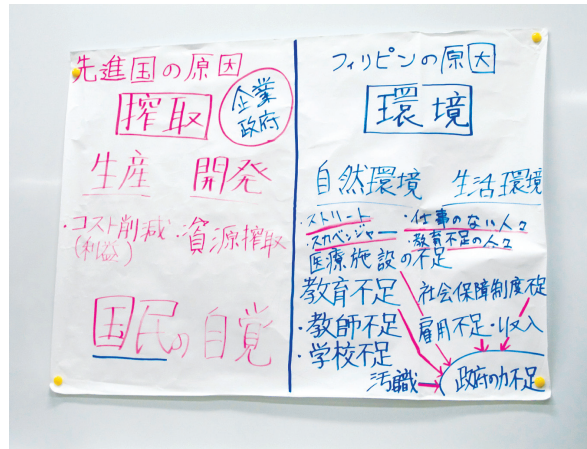 先進国の原因
搾取
企業
政府
生産 開発
・コスト削減
(利益)
・資源搾取
国民の自覚
フィリピンの原因
環境
自然環境 生活環境
・ストリート
・スカベンジャー
・仕事のない人々
・教育不足の人々
医療施設の不足
教育不足
・教師不足
・学校不足
社会保障制度不足
雇用不足・収入
汚職
政府の力不足